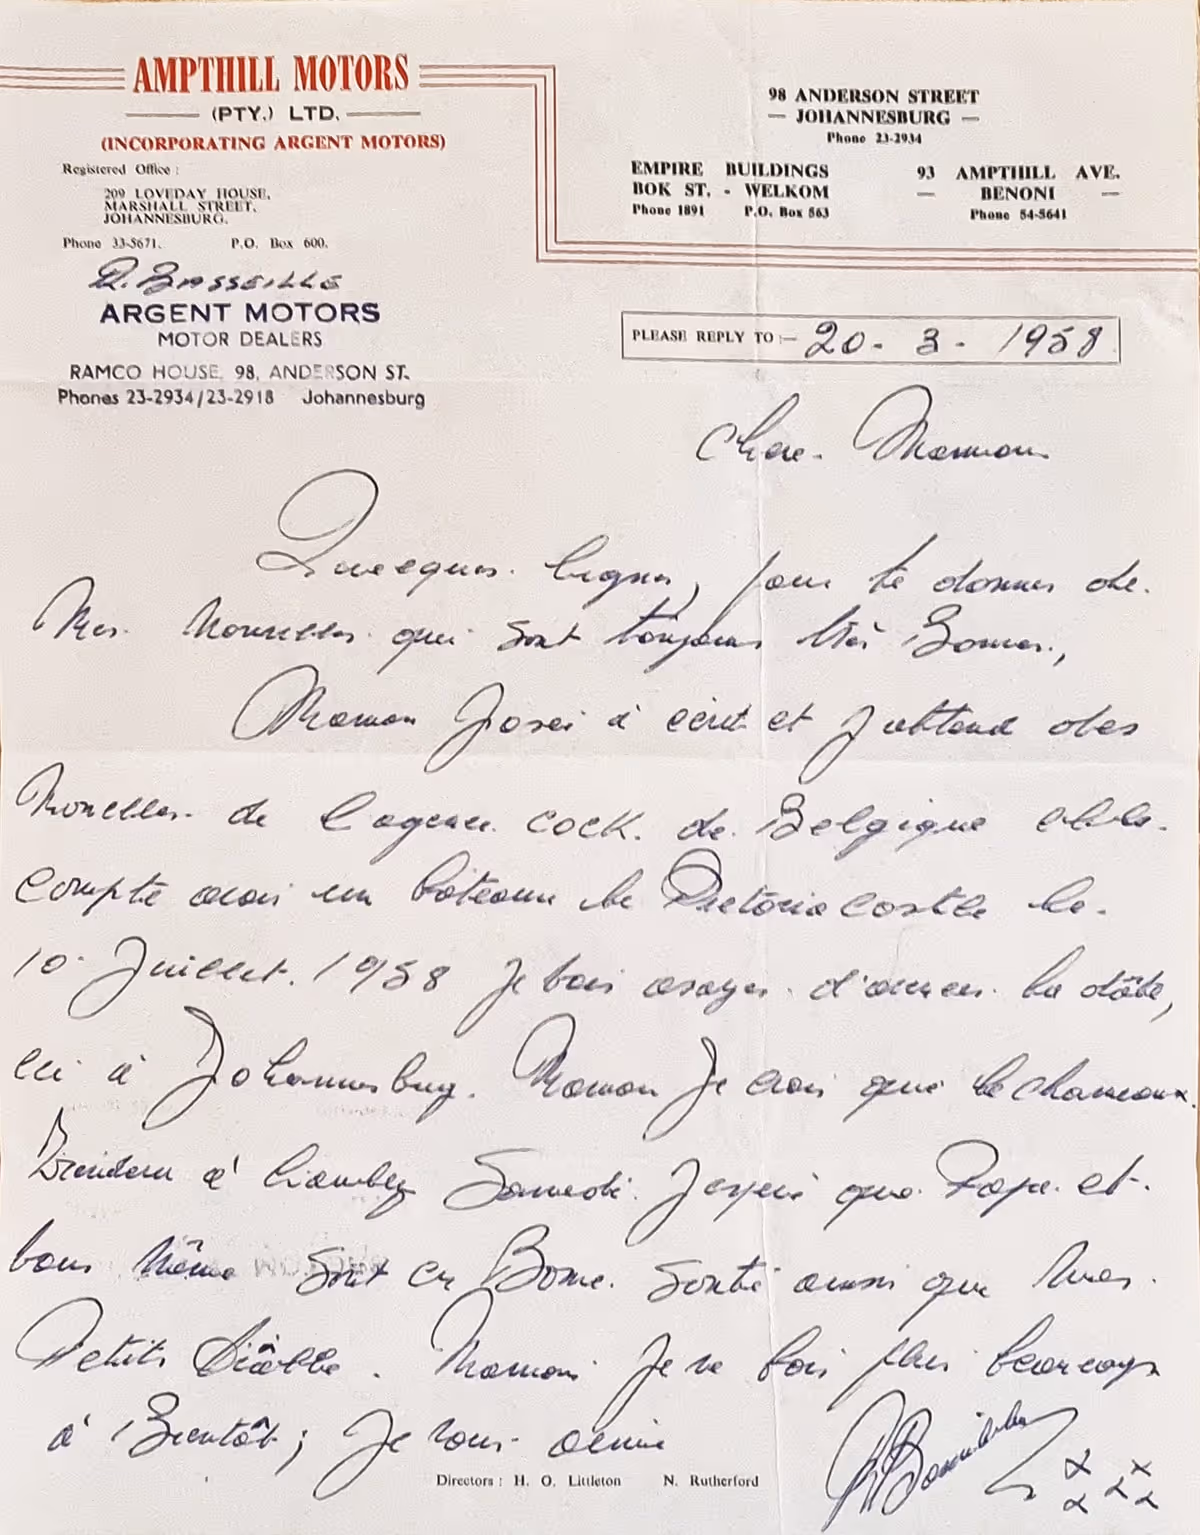 AMPTHILL MOTORS
(PTY.) LTD.
(INCORPORATING ARGENT MOTORS)
Registered Office :
209 LOVEDAY HOUSE,
MARSHALL STREET,
JOHANNESBURG.
Phone 33-5671. P.O. Box 600.
98 ANDERSON STREET
— JOHANNESBURG —
Phone 23-2934
EMPIRE BUILDINGS
BOK ST. - WELKOM
Phone 1891 P.O. Box 563
93 AMPTHILL AVE.
— BENONI —
Phone 54-5641
R. BASSEILLE
ARGENT MOTORS
MOTOR DEALERS
RAMCO HOUSE, 98, ANDERSON ST.
Phones 23-2934/23-2918 Johannesburg
PLEASE REPLY TO :— 20 - 3 - 1958
Chere Maman
Quelques lignes, pour te donner de
Mes Nouvelles qui sont toujours très Bonnes,
Maman à écrit et J'attend des
Nouvelles de l'agence COCK de Belgique elle
compte avoir un bâteau le Pretoria Castle le
10 Juillet 1958 Je vais d'avancer la dâte,
ici à Johannesburg. Maman Je crois que le
à Samedi. J'espère que Papa et
vous Même sont en Bonne Santé ainsi que Mes
Petits Diâble. Maman Je ne vois plus beaucoup
à Bientôt; Je vous aime
Directors : H. O. Littleton N. Rutherford
x x x x x